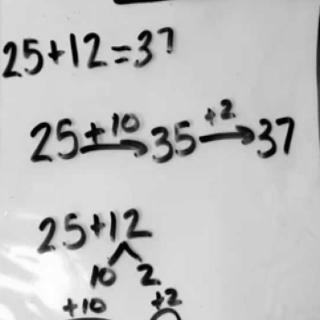 25+12=37
25 +10→ 35 +2→ 37
25+12
10 2
+10 +2